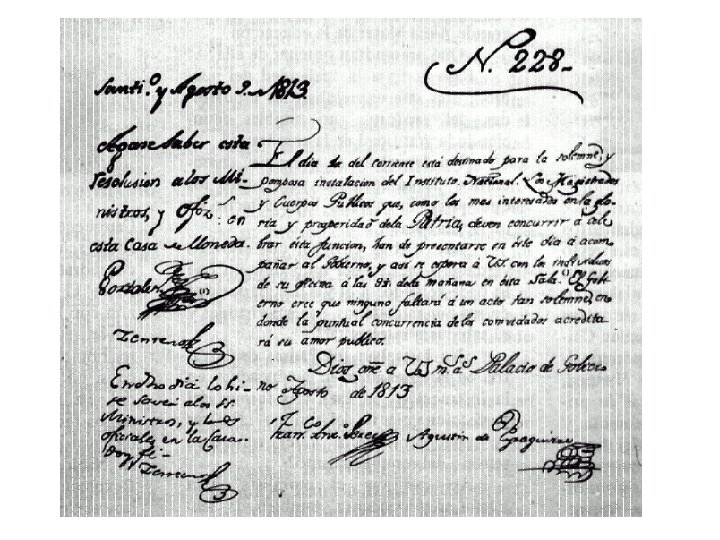 N. 228.
Santi.º y Agosto 9. de 1813.
Agase Saber esta
resolusion a los Mi-
nistros, y ofiz.s en
esta Casa de Moneda.
El dia de del corriente está destinado para la solemne, y
pomposa instalacion del Instituto Nacional. Los Magistrados
y Cuerpos Publicos que, como los mas interesados en la glo-
ria y prosperidad dela Patria, deven concurrir á cele
brar esta funcion, han de presentarse en éste dia á acom
pañar al Gobierno, y asi se espera á VS. con los individuos
de su oficina á las 9 dela mañana en ésta Sala. El Gob
ierno cree que ninguno faltará á un acto tan solemne, en
donde la puntual concurrencia de los convidados acredita
rá su amor publico.
Dios gñe a VS m.s a.s Palacio de Gobierno
Agosto de 1813
En dho dia lo hi-
se saver a los SS.
Ministros, y
oficiales en la Casa
doy fe-
Fran.co Ant.o Perez Agustin de Eyzaguirre